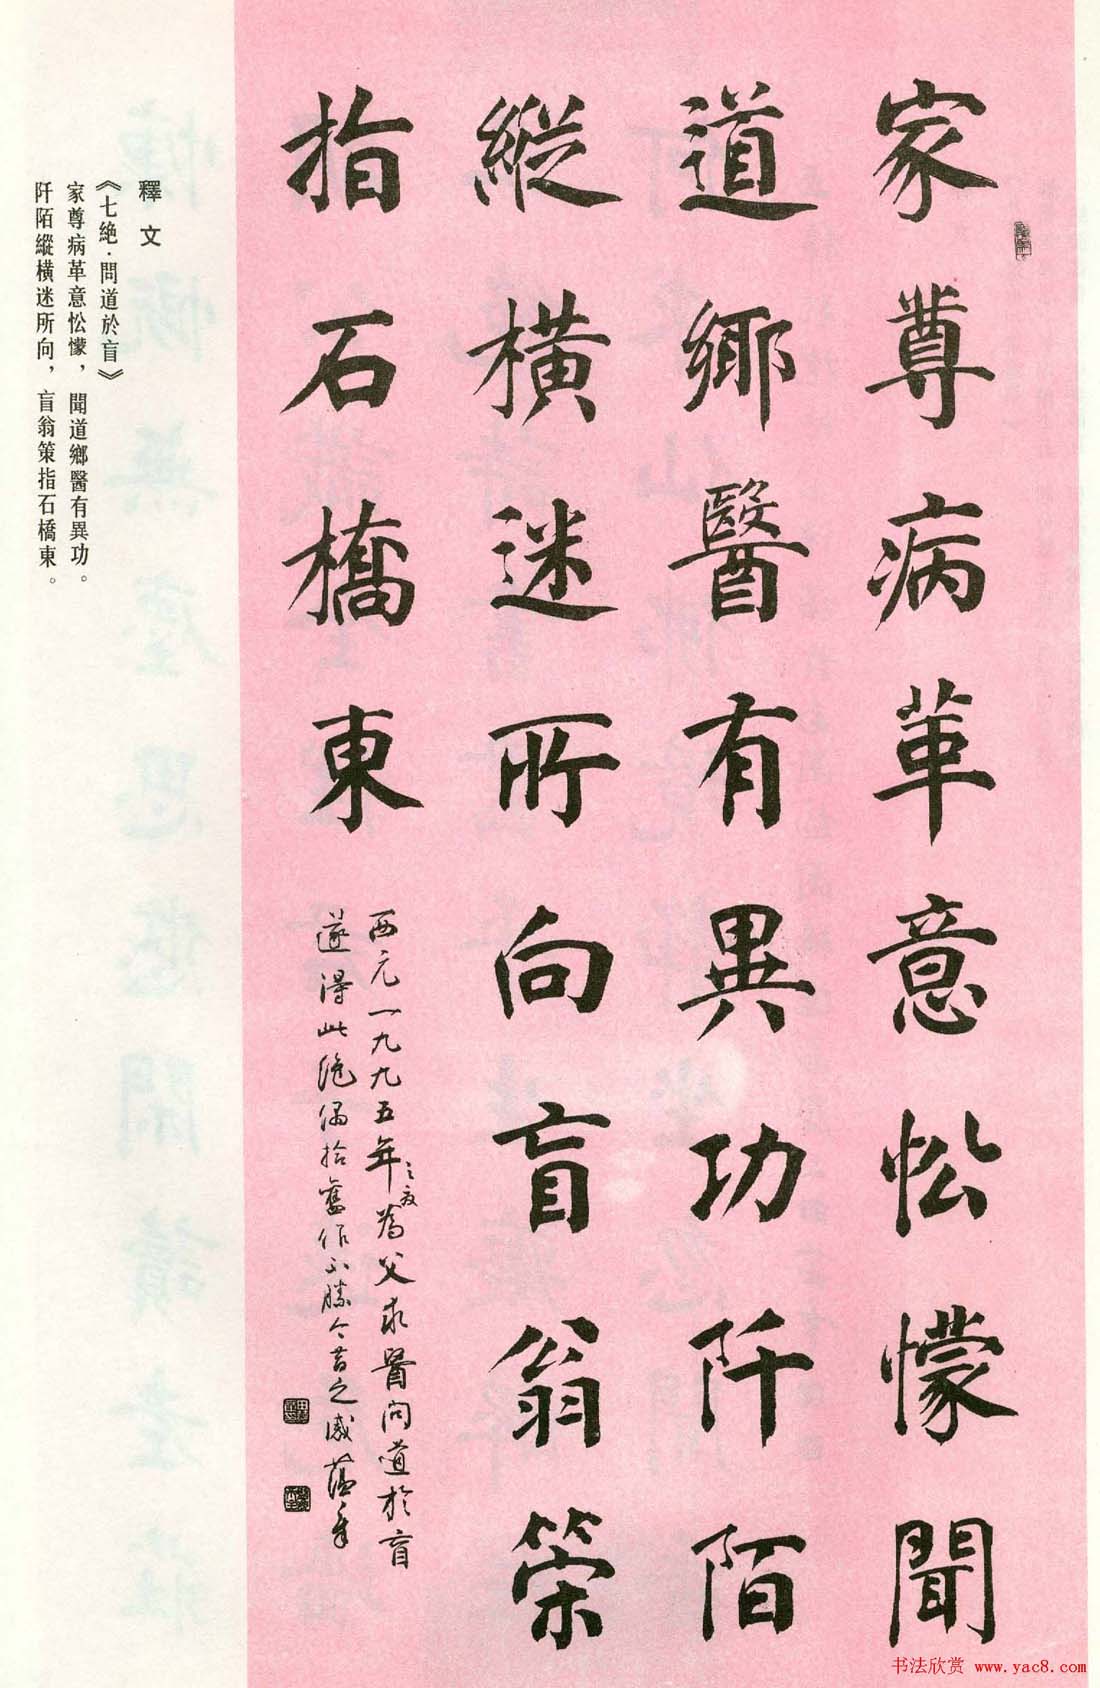 家尊病革意忪懞聞
道鄉醫有異功阡陌
縱橫迷所向盲翁策
指石橋東
西元一九九五年之夏為父求醫問道於盲
遂得此絶偶拾舊作不勝今昔之感
釋文
《七絶·問道於盲》
家尊病革意忪懞，聞道鄉醫有異功。
阡陌縱橫迷所向，盲翁策指石橋東。
书法欣赏 www.yac8.com